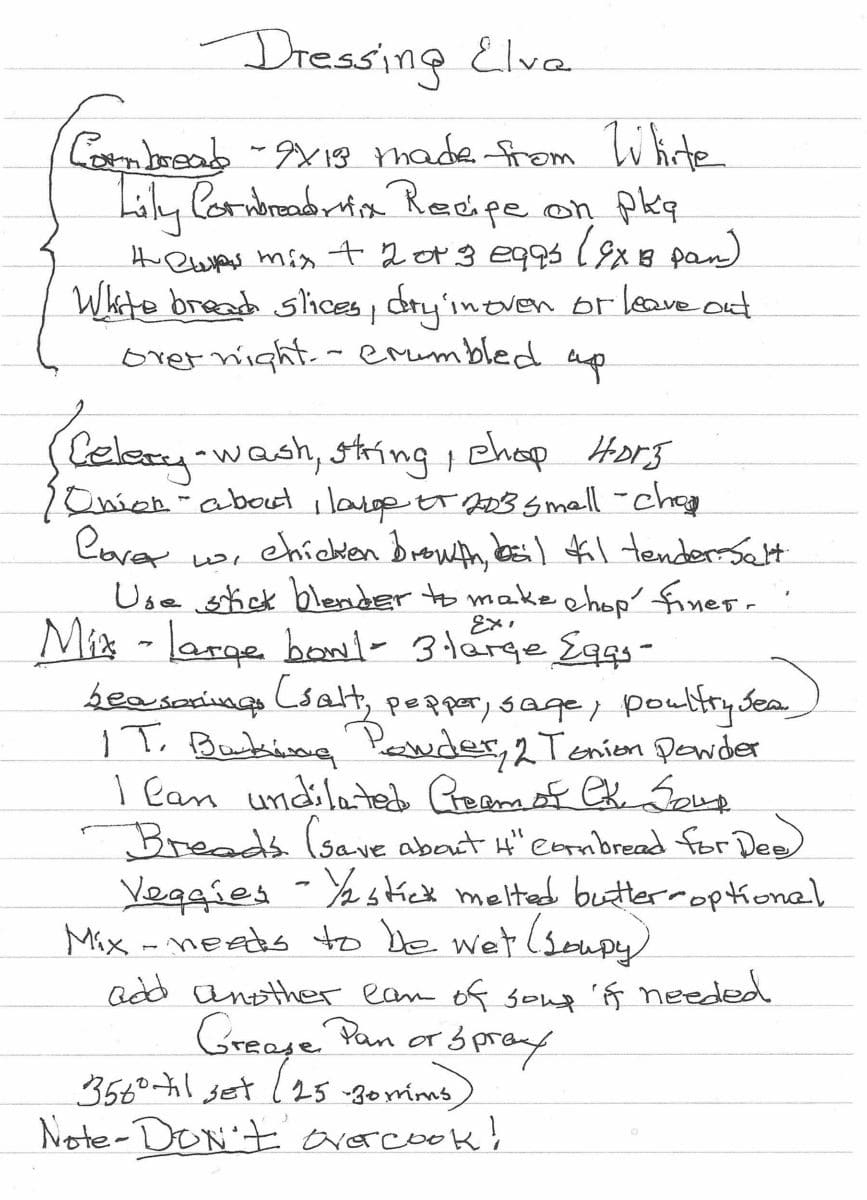 Dressing Elva
Cornbread - 9X13 made from White
Lily Cornbread mix Recipe on pkg
4 cups mix + 2 or 3 eggs (9x13 pan)
White bread slices, dry in oven or leave out
over night. - crumbled up
Celery - wash, string, chop 4 or 5
Onion - about 1 large or 2 or 3 small - chop
Cover w, chicken browth, boil til tender. Salt
Use stick blender to make chop' finer.
Ex.
Mix - large bowl - 3 large Eggs -
seasonings (salt, pepper, sage, poultry sea)
1 T. Baking Powder, 2 T onion powder
1 Can undiluted Cream of CK. Soup
Breads (save about 4" cornbread for Dee)
Veggies - 1/2 stick melted butter - optional
Mix - needs to be wet (soupy)
add another can of soup if needed
Grease Pan or spray
350° til set (25 - 30 mins)
Note - DON'T overcook!